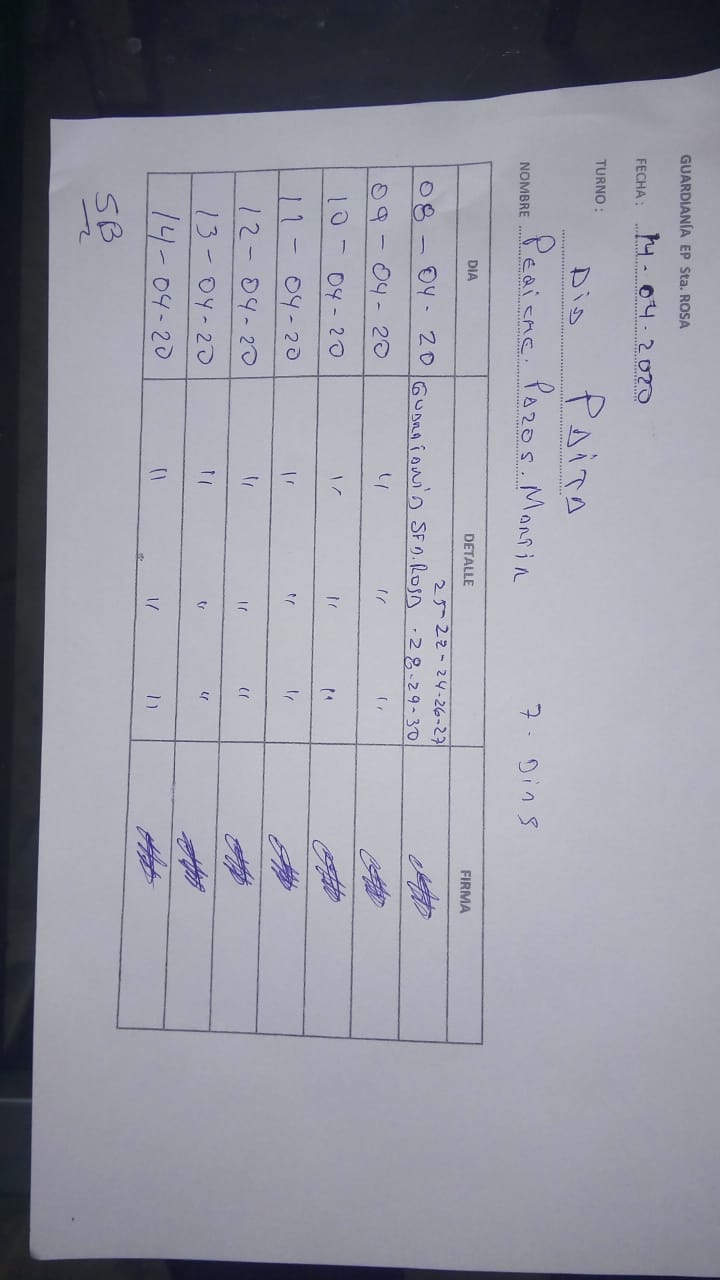 GUARDIANÍA EP Sta. ROSA
FECHA: 14-04-2020
TURNO: Dia
NOMBRE Pazos. 7- Dias
DIA DETALLE FIRMA
25 22-24-26-27
08-04-20 Guardiania Sta. Rosa .28-29-30
09-04-20 " " "
10-04-20 " " "
11-04-20 " " "
12-04-20 " " "
13-04-20 " " "
14-04-20 " " "
SB